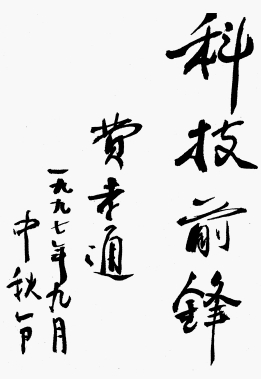 科技前锋
费孝通
一九九七年九月
中秋节